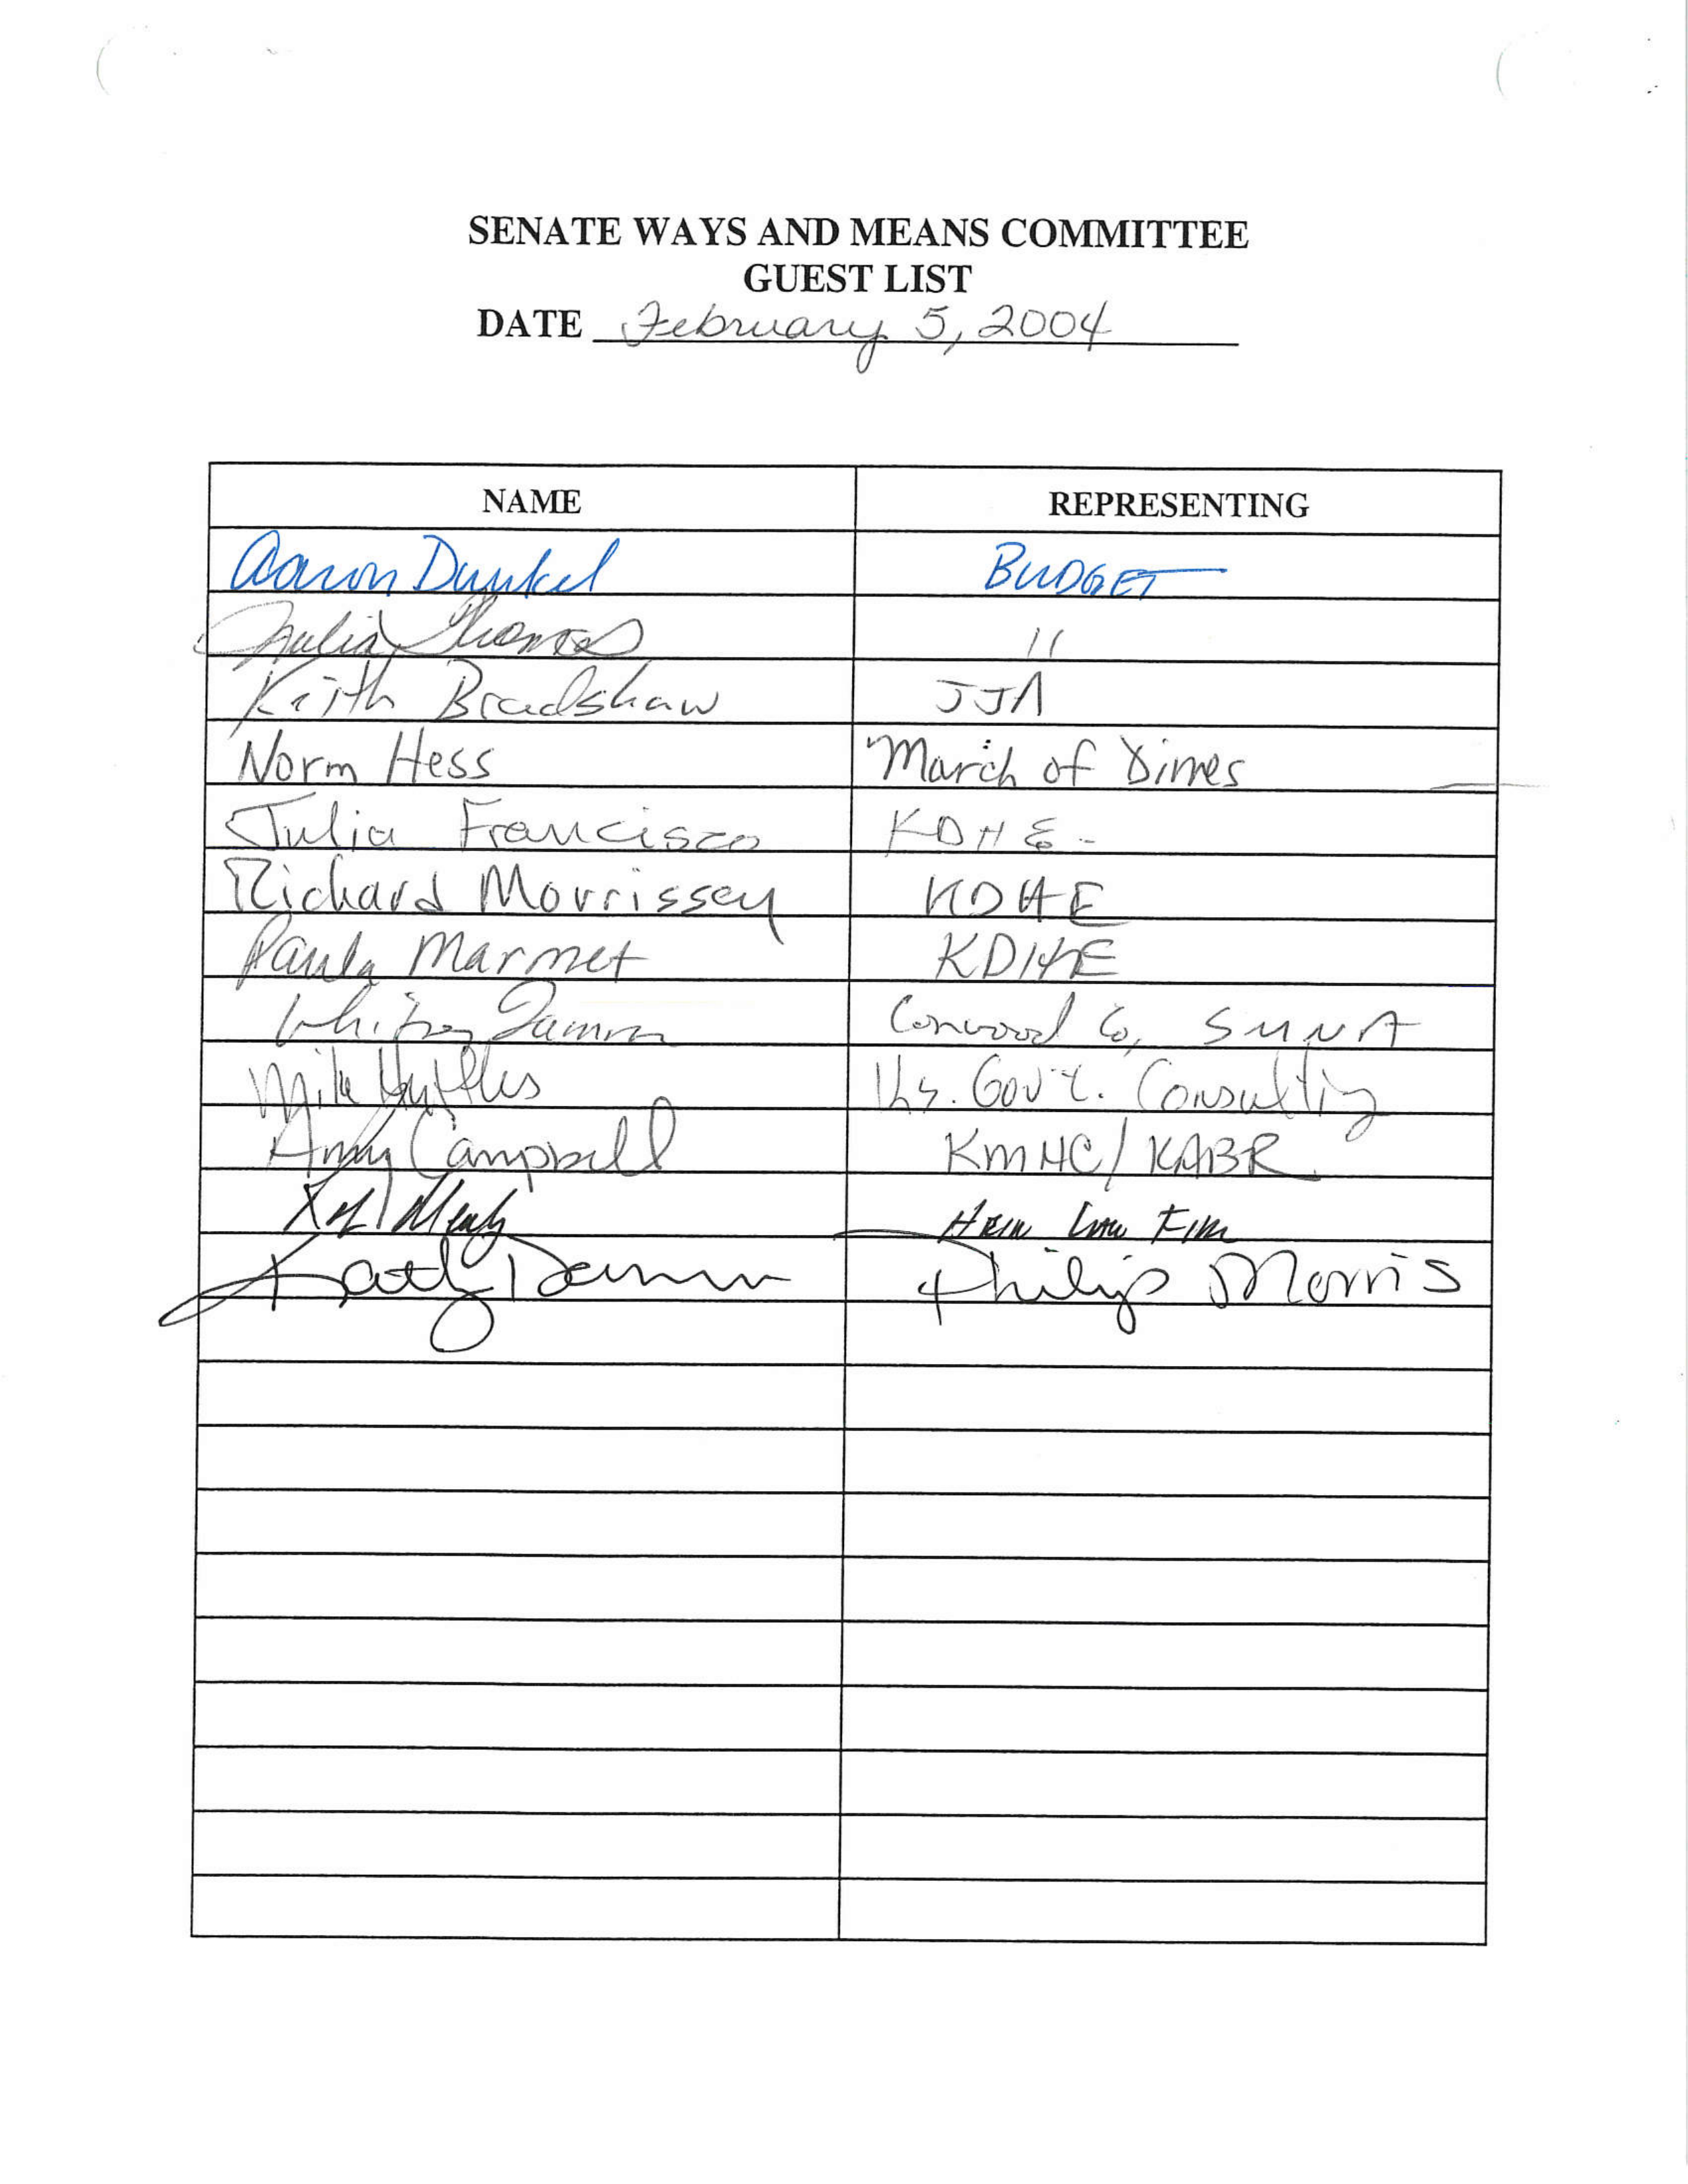 SENATE WAYS AND MEANS COMMITTEE
GUEST LIST
DATE February 5, 2004
NAME REPRESENTING
Aaron Dunkel BUDGET
Julia Thomas "
Keith Bradshaw JJA
Norm Hess March of Dimes
Julia Francisco KDHE
Richard Morrissey KDHE
Paula Marmet KDHE
Whitney Damron Conwood Co, SMNA
Mike Huttles Ks. Gov't. Consulting
Amy Campbell KMHC/KABR
Hein Law Firm
Kathy Damron Philip Morris